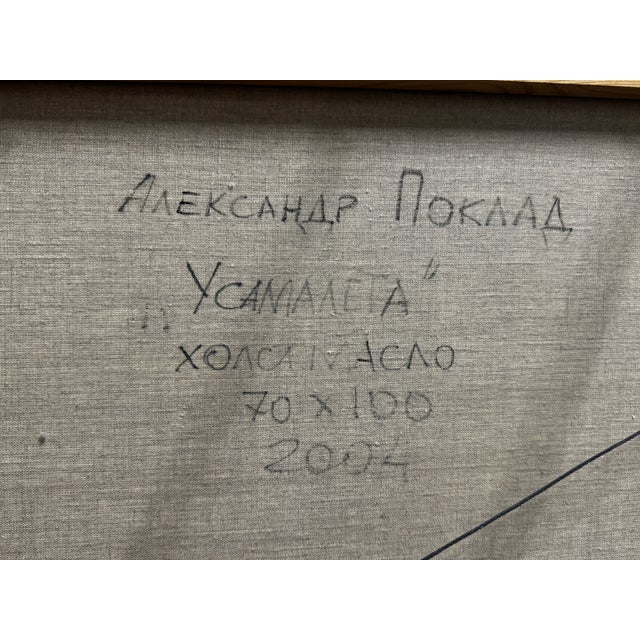 Александр Поклад
„Усамалета"
холст масло
70 x 100
2004